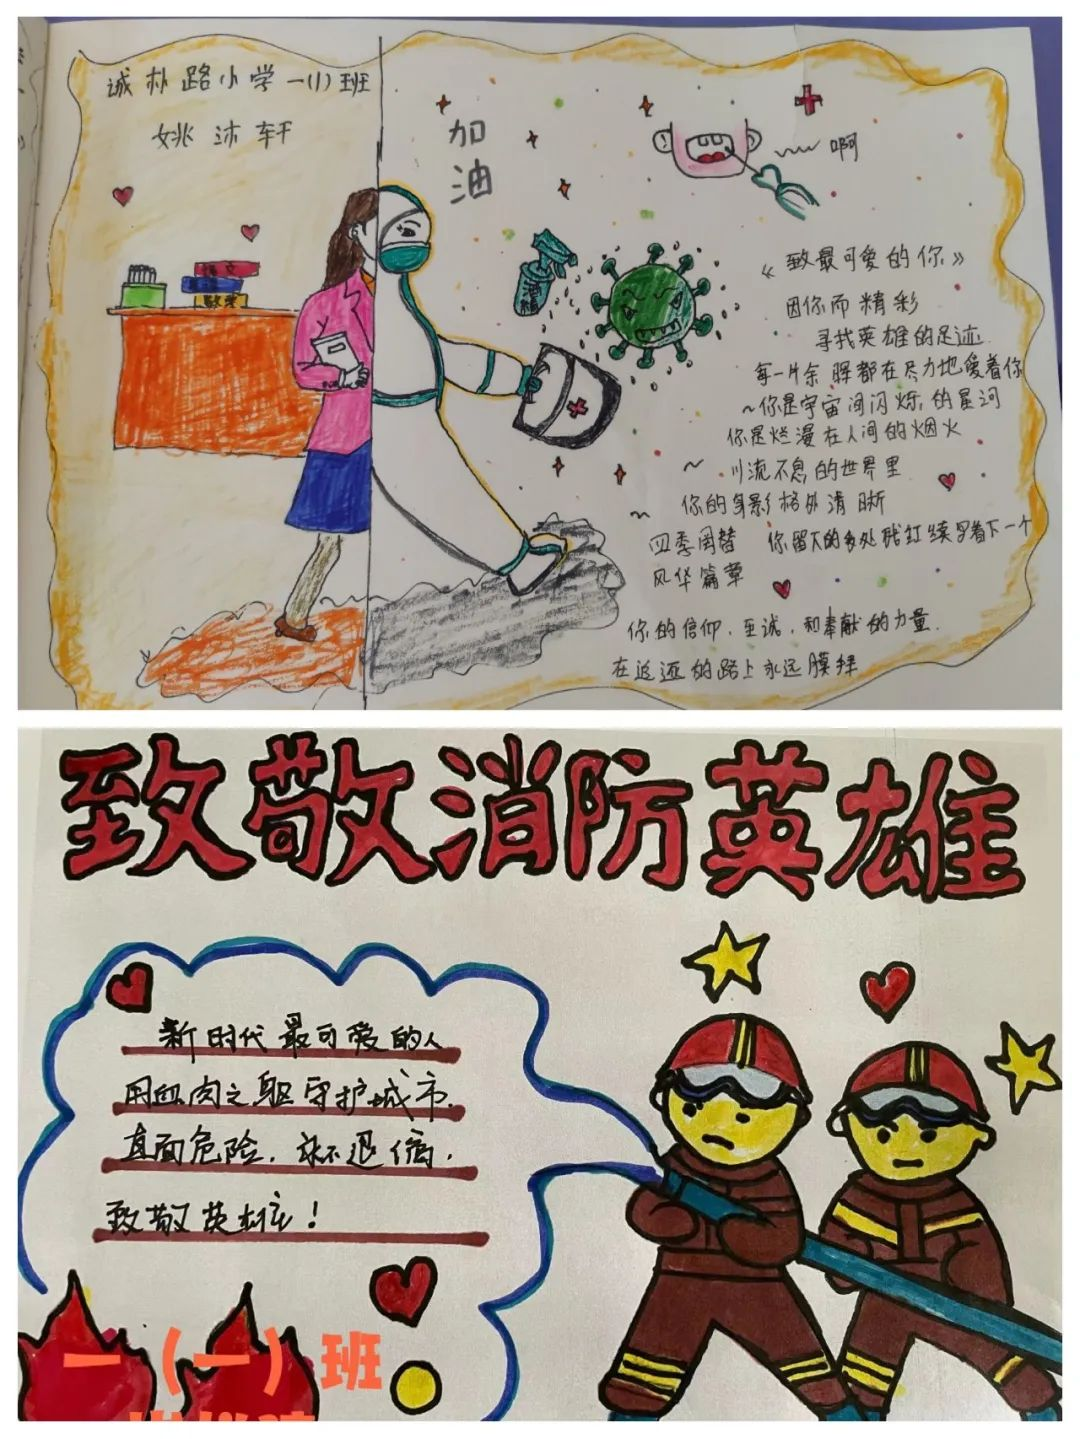 诚朴路小学一(1)班
姚沐轩
加油
啊
语文
数学
酒精
《致最可爱的你》
因你而精彩
寻找英雄的足迹
每一片余晖都在尽力地爱着你
~你是宇宙间闪烁的星河
你是烂漫在人间的烟火
~川流不息的世界里
~你的身影格外清晰
四季周替 你留下的多处
红续写着下一个
风华篇章
你的信仰,至诚,和奉献的力量.
在追逐的路上永远膜拜
致敬消防英雄
新时代最可爱的人
用血肉之躯守护城市.
直面危险,永不退缩.
致敬英雄!
一（一）班